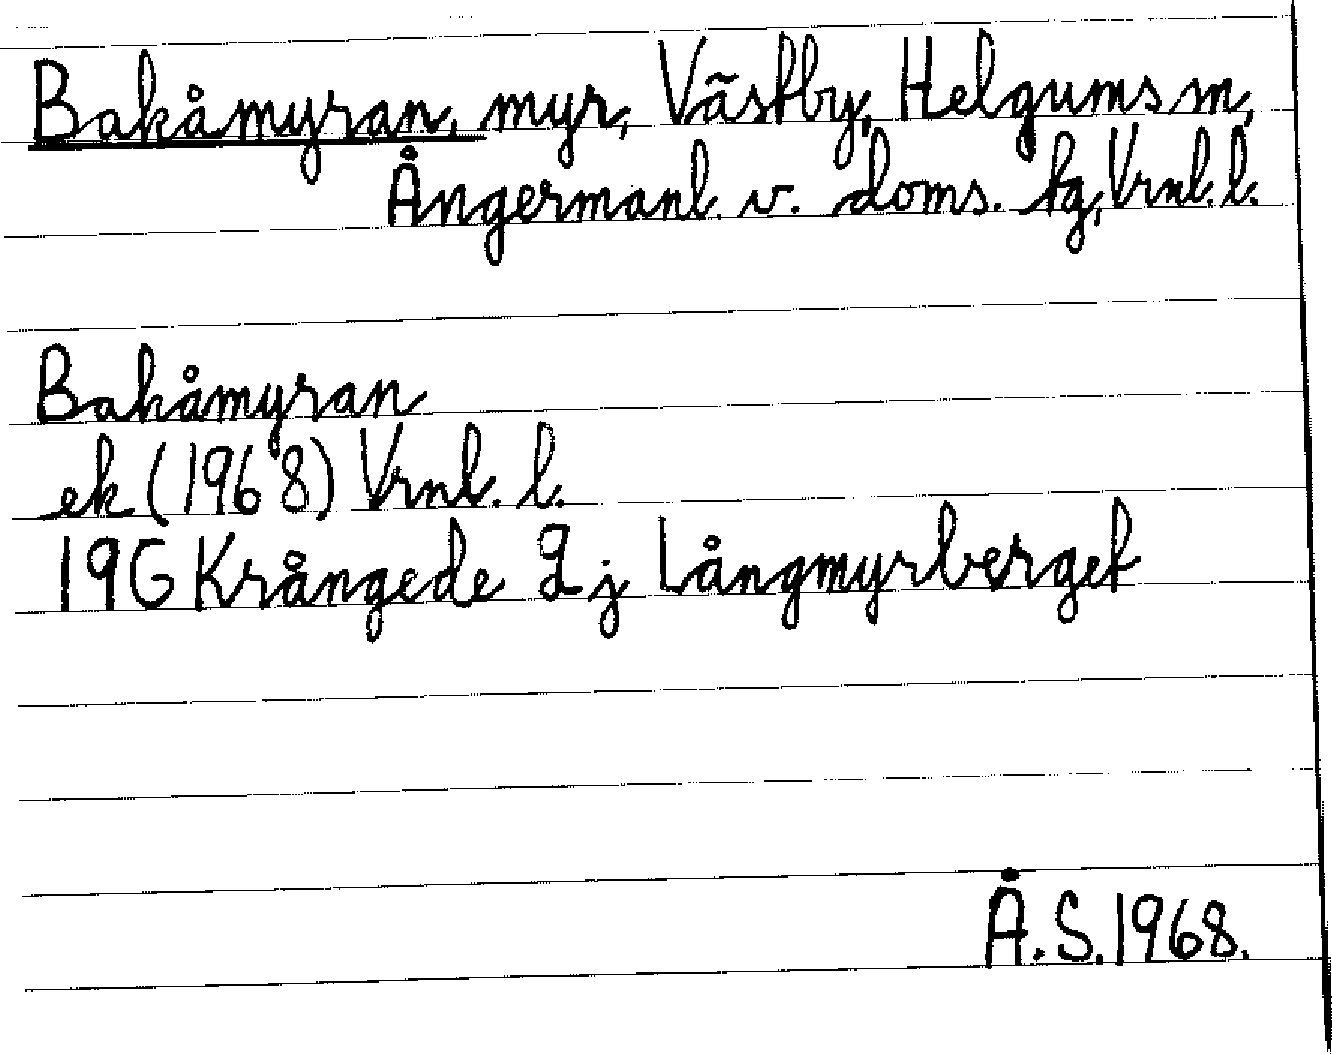 Bakåmyran, myr, Västby, Helgums sn,
Ångermanl. v. doms. tg, Vrnl. l.
Bakåmyran
ek (1968) Vrnl. l.
19G Krångede 2j Långmyrberget
Å.S. 1968.